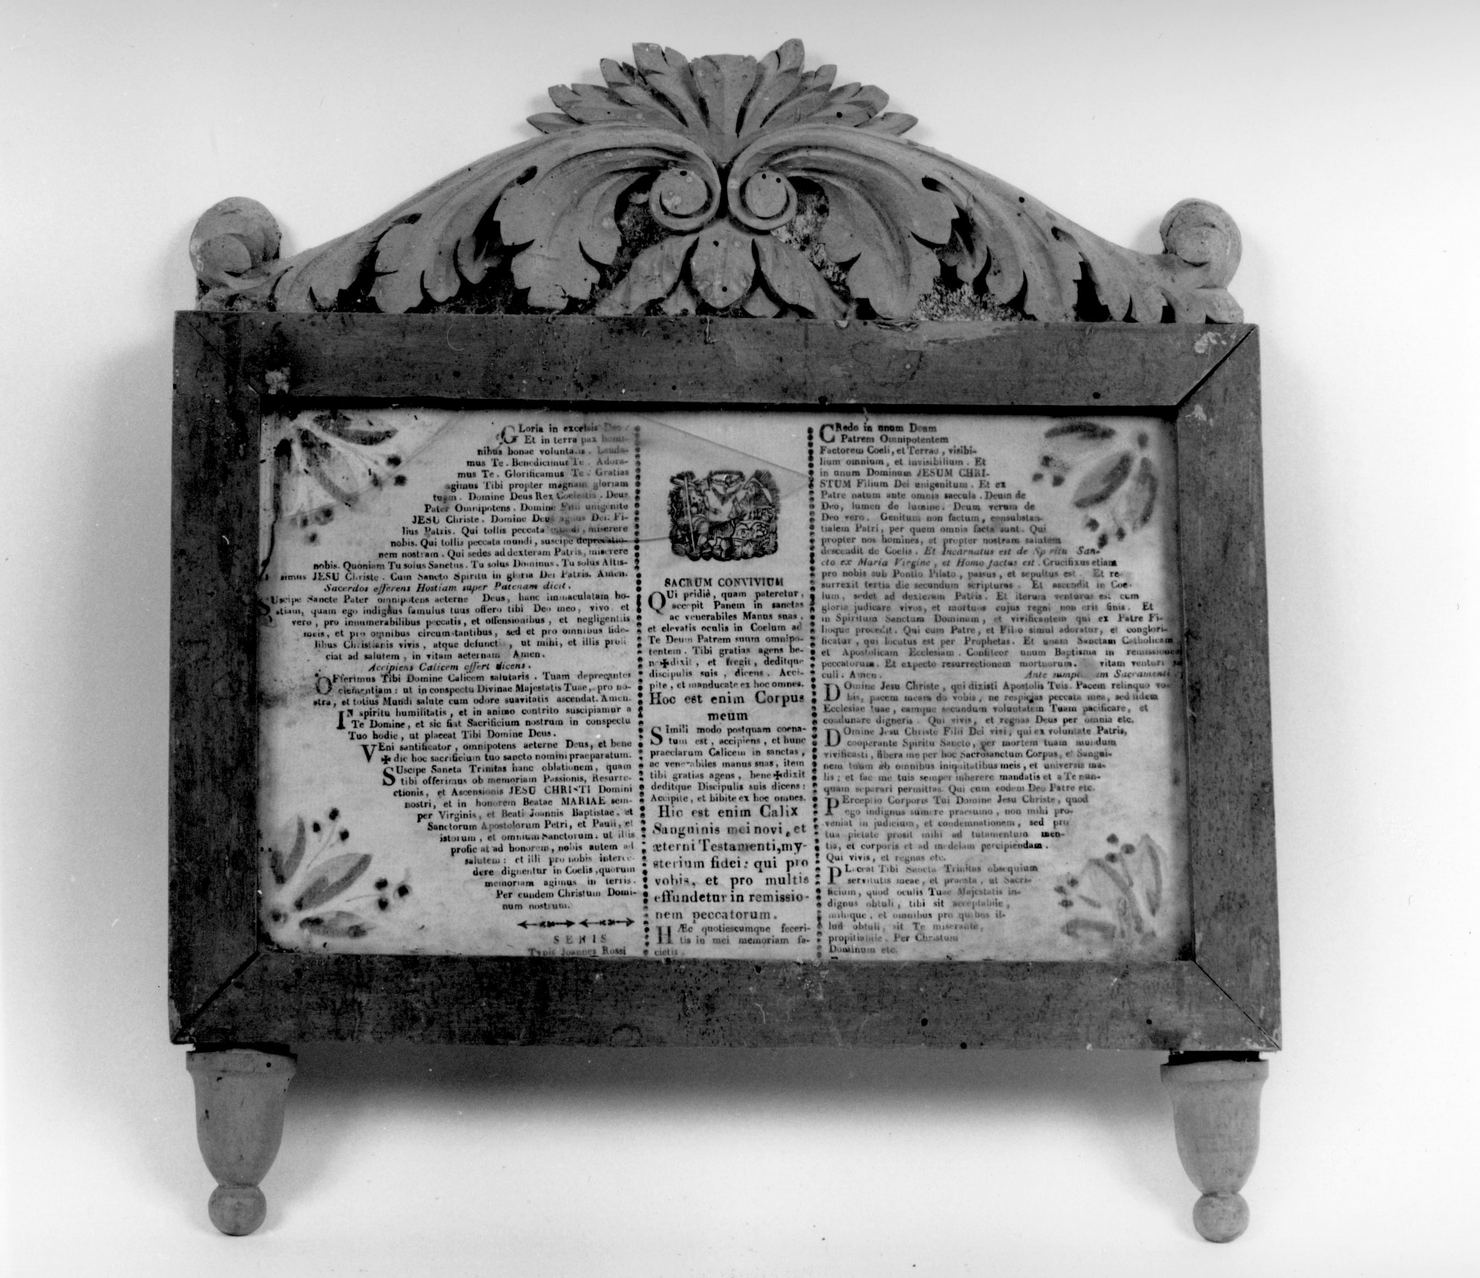 GLoria in excelsis Deo
Et in terra pax homi-
nibus bonae voluntatis. Lauda-
mus Te. Benedicimus Te. Adora-
mus Te. Glorificamus Te. Gratias
agimus Tibi propter magnam gloriam
tuam. Domine Deus Rex Coelestis. Deus
Pater Omnipotens. Domine Fili unigenite
JESU Christe. Domine Deus agnus Dei. Fi-
lius Patris. Qui tollis peccata mundi, miserere
nobis. Qui tollis peccata mundi, suscipe deprecatio-
nem nostram. Qui sedes ad dexteram Patris, miserere
nobis. Quoniam Tu solus Sanctus. Tu solus Dominus. Tu solus Altis-
simus JESU Christe. Cum Sancto Spiritu in gloria Dei Patris. Amen.
Sacerdos efferens Hostiam super Patenam dicit.
SUscipe Sancte Pater omnipotens aeterne Deus, hanc immaculatam ho-
stiam, quam ego indignus famulus tuus offero tibi Deo meo, vivo et
vero, pro innumerabilibus peccatis, et offensionibus, et negligentiis
meis, et pro omnibus circumstantibus, sed et pro omnibus fide-
libus Christianis vivis, atque defunctis, ut mihi, et illis profi
ciat ad salutem, in vitam aeternam Amen.
Accipiens Calicem offert dicens.
OFferimus Tibi Domine Calicem salutaris. Tuam deprecantes
clementiam: ut in conspectu Divinae Majestatis Tuae, pro no-
stra, et totius Mundi salute cum odore suavitatis ascendat. Amen.
IN spiritu humilitatis, et in animo contrito suscipiamur a
Te Domine, et sic fiat Sacrificium nostrum in conspectu
Tuo hodie, ut placeat Tibi Domine Deus.
VEni santificator, omnipotens aeterne Deus, et bene
✠ dic hoc sacrificium tuo sancto nomini praeparatum.
SUscipe Sancta Trinitas hanc oblationem, quam
tibi offerimus ob memoriam Passionis, Resurre-
ctionis, et Ascensionis JESU CHRISTI Domini
nostri, et in honorem Beatae MARIAE sem-
per Virginis, et Beati Joannis Baptistae, et
Sanctorum Apostolorum Petri, et Pauli, et
istorum, et omnium Sanctorum. ut illis
profic at ad honorem, nobis autem ad
salutem: et illi pro nobis interce-
dere dignentur in Coelis, quorum
memoriam agimus in terris.
Per eundem Christum Domi-
num nostrum.
SENIS
Typis Joannes Rossi
SACRUM CONVIVIUM
QUi pridiè, quam pateretur,
accepit Panem in sanctas
ac venerabiles Manus suas,
et elevatis oculis in Coelum ad
Te Deum Patrem suum omnipo-
tentem. Tibi gratias agens be-
ne✠dixit, et fregit, deditque
discipulis suis, dicens. Acci-
pite, et manducate ex hoc omnes.
Hoc est enim Corpus
meum
SImili modo postquam coena-
tum est, accipiens, et hunc
praeclarum Calicem in sanctas,
ac venerabiles manus suas, item
tibi gratias agens, bene✠dixit
deditque Discipulis suis dicens:
Accipite, et bibite ex hoc omnes.
Hic est enim Calix
Sanguinis mei novi, et
æterni Testamenti, my-
sterium fidei: qui pro
vobis, et pro multis
effundetur in remissio-
nem peccatorum.
HÆc quotiescumque feceri-
tis in mei memoriam fa-
cietis.
CRedo in unum Deum
Patrem Omnipotentem
Factorem Coeli, et Terrae, visibi-
lium omnium, et invisibilium. Et
in unum Dominum JESUM CHRI-
STUM Filium Dei unigenitum. Et ex
Patre natum ante omnia saecula. Deum de
Deo, lumen de lumine. Deum verum de
Deo vero. Genitum non factum, consubstan-
tialem Patri, per quem omnia facta sunt. Qui
propter nos homines, et propter nostram salutem
descendit de Coelis. Et Incarnatus est de Spiritu San-
cto ex Maria Virgine, et Homo factus est. Crucifixus etiam
pro nobis sub Pontio Pilato, passus, et sepultus est. Et re-
surrexit tertia die secundum scripturas. Et ascendit in Coe-
lum, sedet ad dexteram Patris. Et iterum venturus est cum
gloria judicare vivos, et mortuos cujus regni non erit finis. Et
in Spiritum Sanctum Dominum, et vivificantem qui ex Patre Fi-
lioque procedit. Qui cum Patre, et Filio simul adoratur, et conglori-
ficatur, qui locutus est per Prophetas. Et unam Sanctam Catholicam
et Apostolicam Ecclesiam. Confiteor unum Baptisma in remissionem
peccatorum. Et expecto resurrectionem mortuorum. vitam venturi sæ
culi. Amen. Ante sumptionem Sacramenti
DOmine Jesu Christe, qui dixisti Apostolis Tuis. Pacem relinquo vo-
bis, pacem meam do vobis, ne respicias peccata mea, sed fidem
Ecclesiae tuae, eamque secundum voluntatem Tuam pacificare, et
coadunare digneris. Qui vivis, et regnas Deus per omnia etc.
DOmine Jesu Christe Filii Dei vivi, qui ex voluntate Patris,
cooperante Spiritu Sancto, per mortem tuam mundum
vivificasti, libera me per hoc Sacrosanctum Corpus, et Sangui-
nem tuum ab omnibus iniquitatibus meis, et universis ma-
lis; et fac me tuis semper inherere mandatis et a Te nun-
quam separari permittas. Qui cum eodem Deo Patre etc.
PErceptio Corporis Tui Domine Jesu Christe, quod
ego indignus sumere praesumo, non mihi pro-
veniat in judicium, et condemnationem, sed pro
tua pietate prosit mihi ad tutamentum men-
tis, et corporis et ad medelam percipiendam.
Qui vivis, et regnas etc.
PLaceat Tibi Sancta Trinitas obsequium
servitutis meae, et praesta, ut Sacri-
ficium, quod oculis Tuae Majestatis in-
dignus obtuli, tibi sit acceptabile,
mihique, et omnibus pro quibus il-
lud obtuli, sit Te miserante,
propitiabile. Per Christum
Dominum etc.